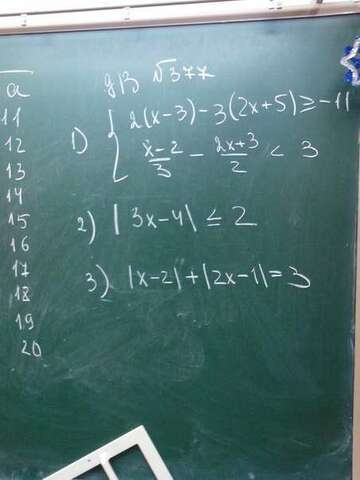 a
11
12
13
14
15
16
17
18
19
20
д/з √377
1) { 2(x-3)-3(2x+5) ≥ -11
(x-2)/3 - (2x+3)/2 < 3
2) |3x-4| ≤ 2
3) |x-2|+|2x-1|=3